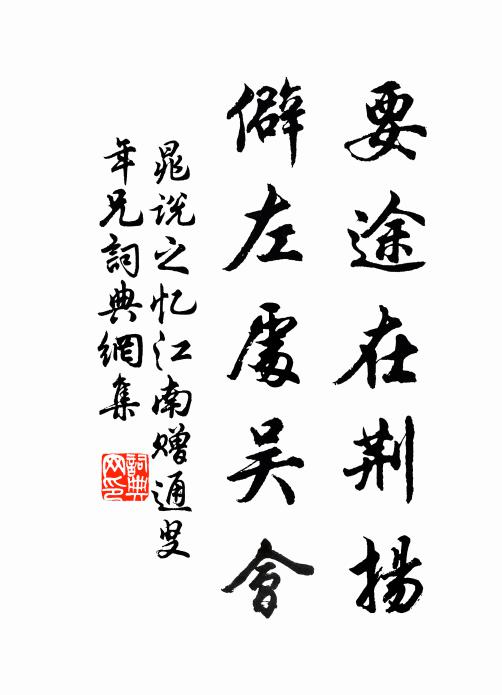 要途在荆揚
僻左處吴會
晁説之忆江南赠通叟
年兄詞典網集
詞典
网印